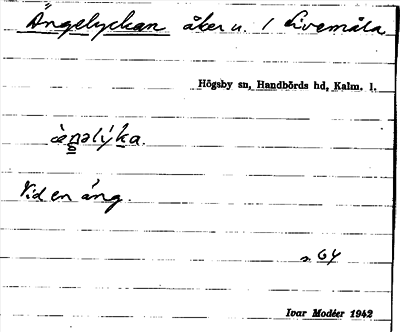 Ängelyckan åker u. / Livemåla
Högsby sn, Handbörds hd, Kalm. l.
Vid en äng.
s. 64
Ivar Modéer 1942